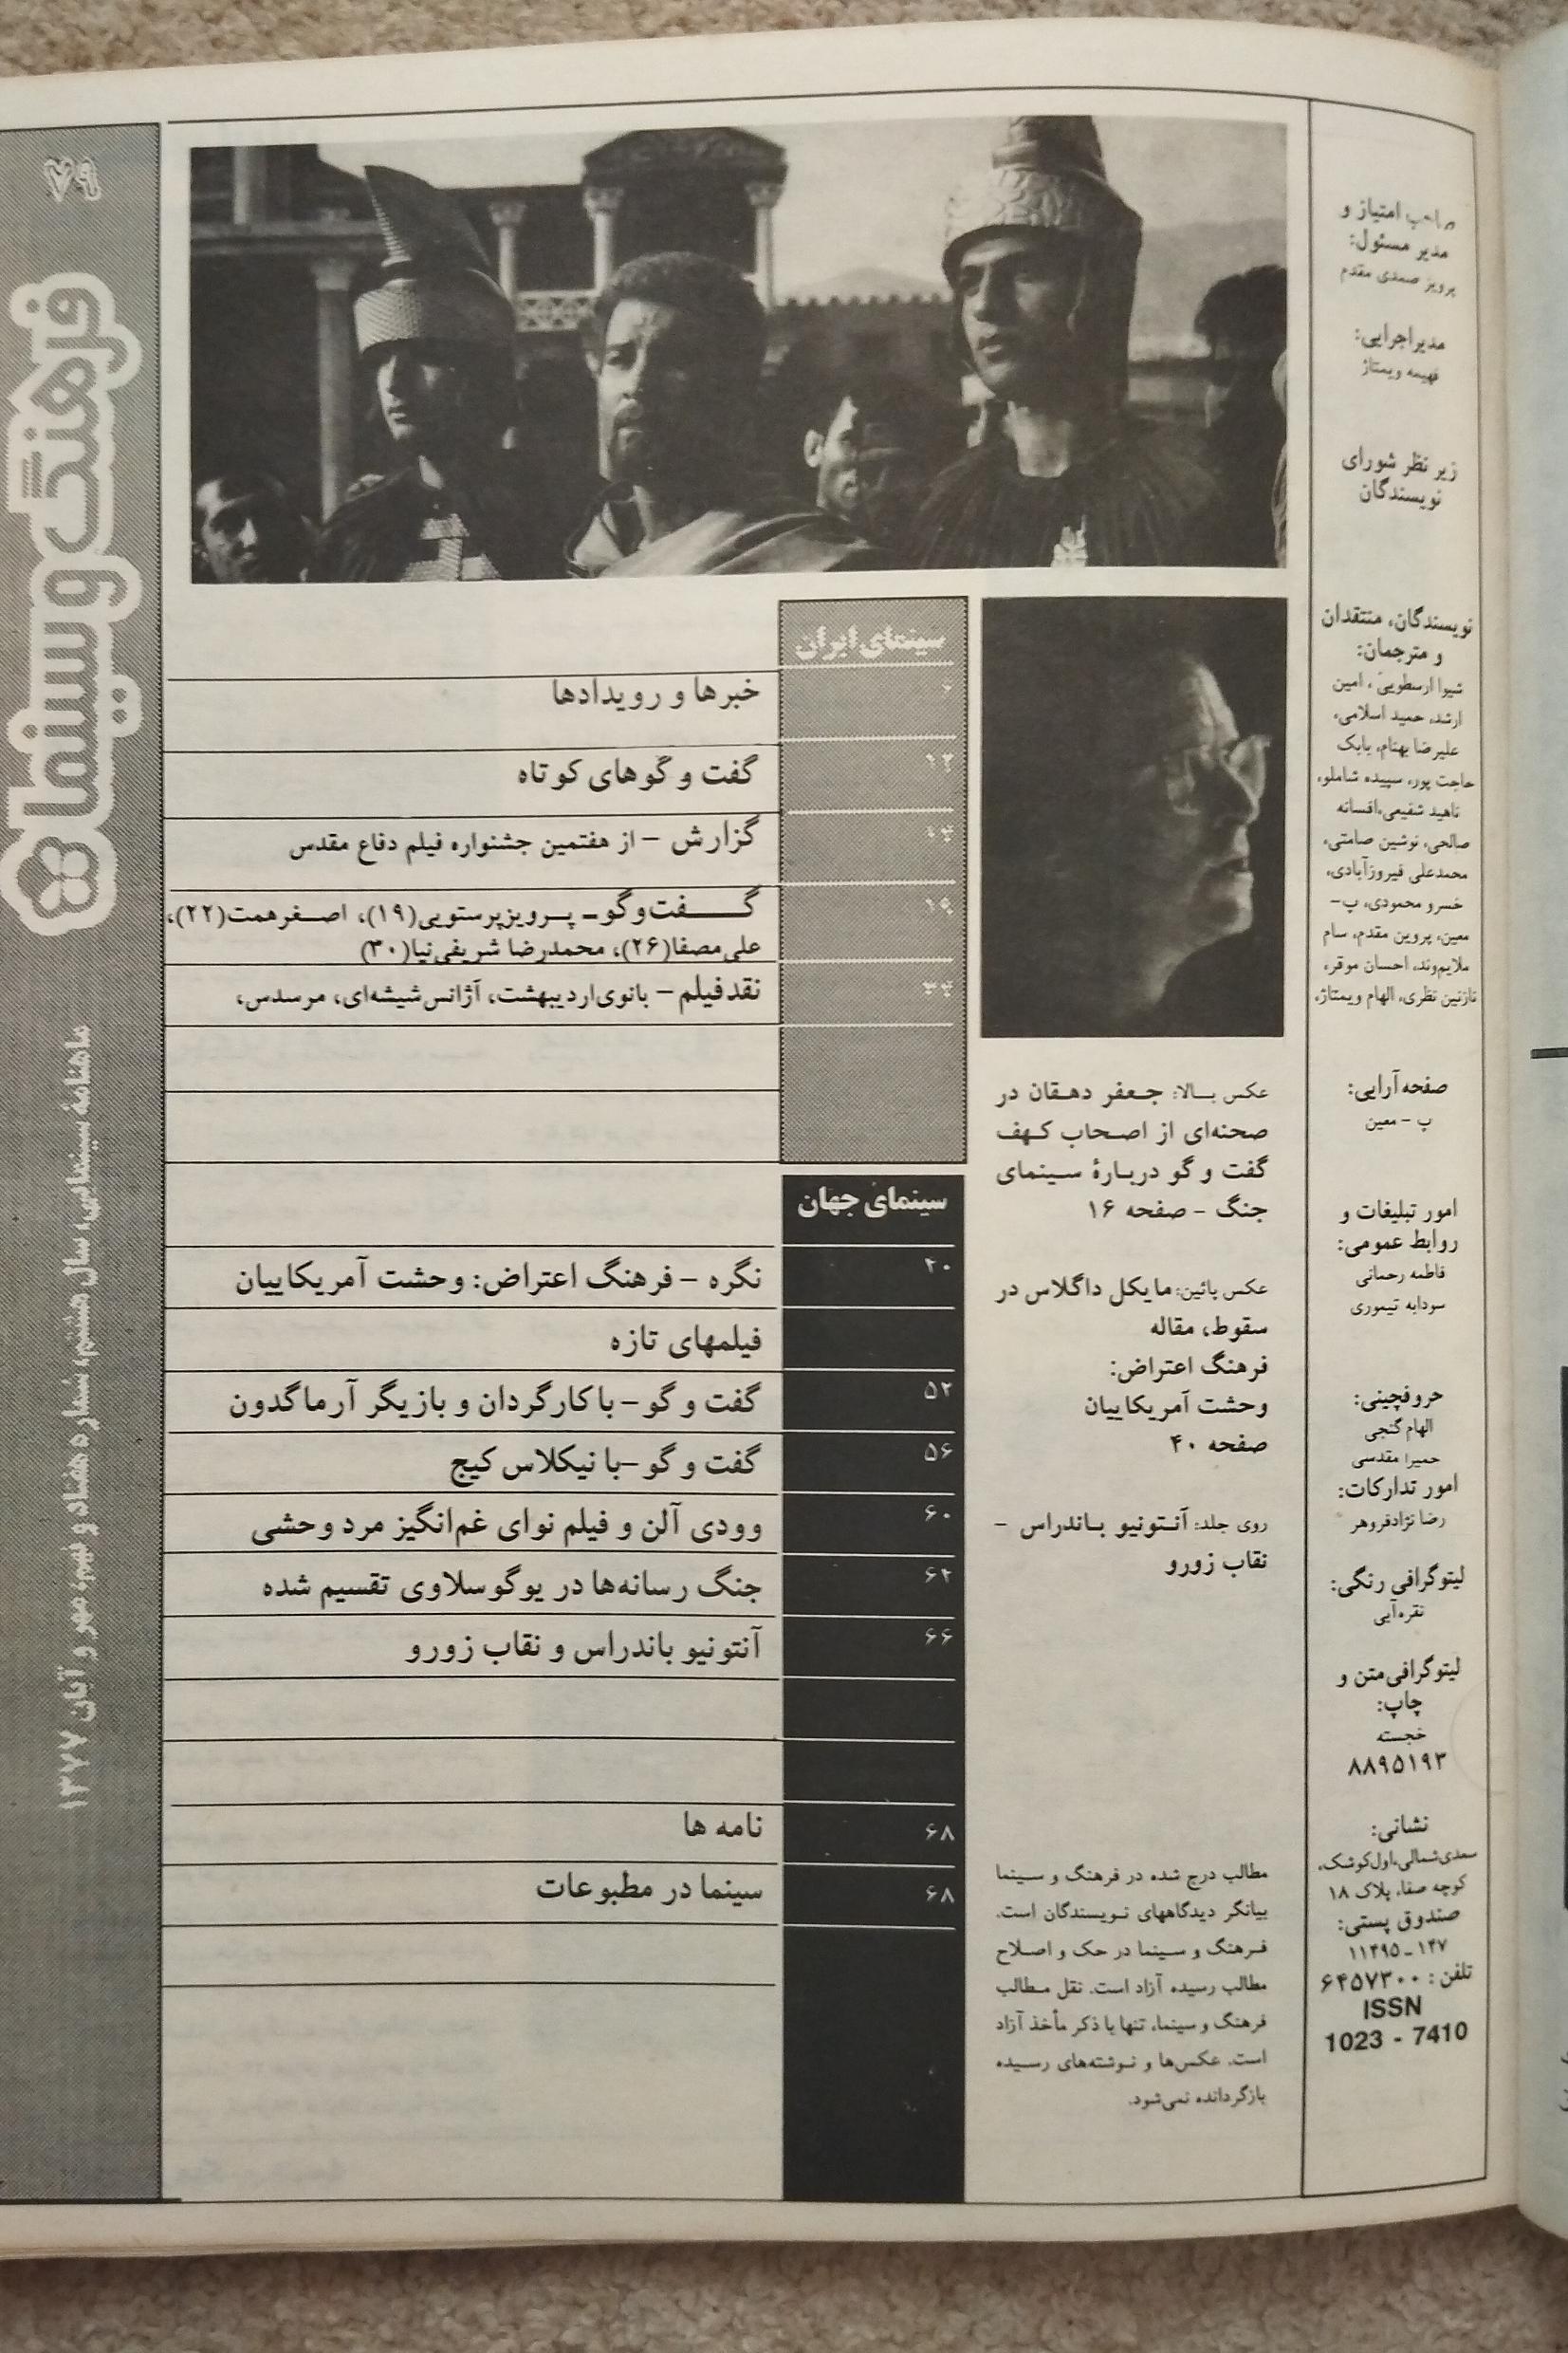 صاحب امتیاز و
مدیر مسئول:
پرویز صمدی مقدم
مدیراجرایی:
فهیمه ویمتاژ
زیر نظر شورای
نویسندگان
نویسندگان، منتقدان
و مترجمان:
شیوا ارسطویی، امین
ارشد، حمید اسلامی،
علیرضا بهنام، بابک
حاجت پور، سپیده شاملو،
ناهید شفیعی، افسانه
صالحی، نوشین صامتی،
محمدعلی فیروزآبادی،
خسرو محمودی، پ-
معین، پروین مقدم، سام
ملایم‌وند، احسان موقر،
نازنین نظری، الهام ویمتاژ،
صفحه آرایی:
پ - معین
امور تبلیغات و
روابط عمومی:
فاطمه رحمانی
سودابه تیموری
حروفچینی:
الهام گنجی
حمیرا مقدسی
امور تدارکات:
رضا نژادفروهر
لیتوگرافی رنگی:
نقره‌آبی
لیتوگرافی متن و
چاپ:
خجسته
۸۸۹۵۱۹۳
نشانی:
سعدی‌شمالی، اول‌کوشک،
کوچه صفا، پلاک ۱۸
صندوق پستی:
۱۱۴۹۵-۱۴۷
تلفن: ۶۴۵۷۳۰۰
ISSN
1023 - 7410
عکس بالا: جعفر دهقان در
صحنه‌ای از اصحاب کهف
گفت و گو دربارهٔ سینمای
جنگ - صفحه ۱۶
عکس بائین: مایکل داگلاس در
سقوط، مقاله
فرهنگ اعتراض:
وحشت آمریکاییان
صفحه ۴۰
روی جلد: آنتونیو باندراس -
نقاب زورو
مطالب درج شده در فرهنگ و سینما
بیانگر دیدگاههای نویسندگان است.
فرهنگ و سینما در حک و اصلاح
مطالب رسیده آزاد است. نقل مطالب
فرهنگ و سینما، تنها با ذکر مأخذ آزاد
است. عکس‌ها و نوشته‌های رسیده
بازگردانده نمی‌شود.
سینمای ایران
خبرها و رویدادها
۱۲ گفت و گوهای کوتاه
۱۴ گزارش - از هفتمین جشنواره فیلم دفاع مقدس
۱۹ گفت‌وگو- پرویزپرستویی(۱۹)، اصغرهمت(۲۲)،
علی‌مصفا(۲۶)، محمدرضا شریفی‌نیا(۳۰)
۳۴ نقدفیلم - بانوی‌اردیبهشت، آژانس‌شیشه‌ای، مرسدس،
سینمای جهان
۴۰ نگره - فرهنگ اعتراض: وحشت آمریکاییان
فیلمهای تازه
۵۲ گفت و گو - با کارگردان و بازیگر آرماگدون
۵۶ گفت و گو - با نیکلاس کیج
۶۰ وودی آلن و فیلم نوای غم‌انگیز مرد وحشی
۶۲ جنگ رسانه‌ها در یوگوسلاوی تقسیم شده
۶۶ آنتونیو باندراس و نقاب زورو
۶۸ نامه ها
۶۸ سینما در مطبوعات
۷۹
فرهنگ و سینما
ماهنامهٔ سینمایی، سال هشتم، شماره هفتاد و نهم، مهر و آبان ۱۳۷۷